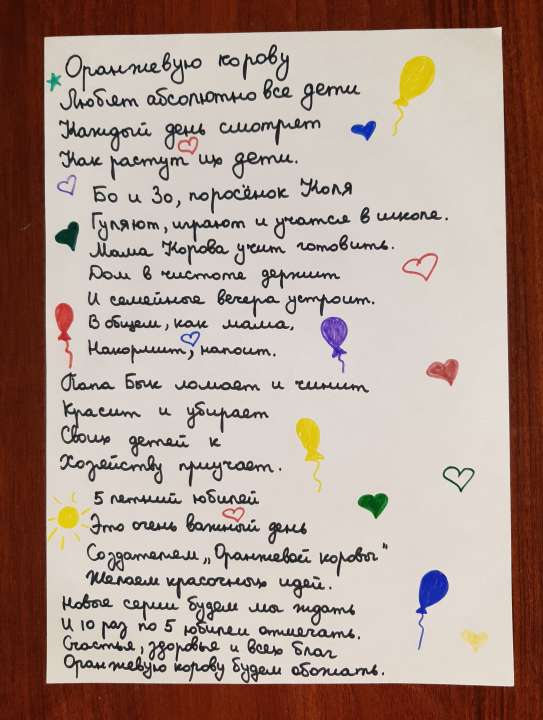 Оранжевую корову
Любят абсолютно все дети
Каждый день смотрят
Как растут их дети.
Бо и Зо, поросёнок Коля
Гуляют, играют и учатся в школе.
Мама Корова учит готовить.
Дом в чистоте держит
И семейные вечера устроит.
В общем, как мама,
Накормит, напоит.
Папа Бык ломает и чинит
Красит и убирает
Своих детей к
Хозяйству приучает.
5 летний юбилей
Это очень важный день
Создателем „Оранжевой коровы"
Желаем красочных идей.
Новые серии будем мы ждать
И 10 раз по 5 юбилеи отмечать.
Счастья, здоровья и всех благ
Оранжевую корову будем обожать.